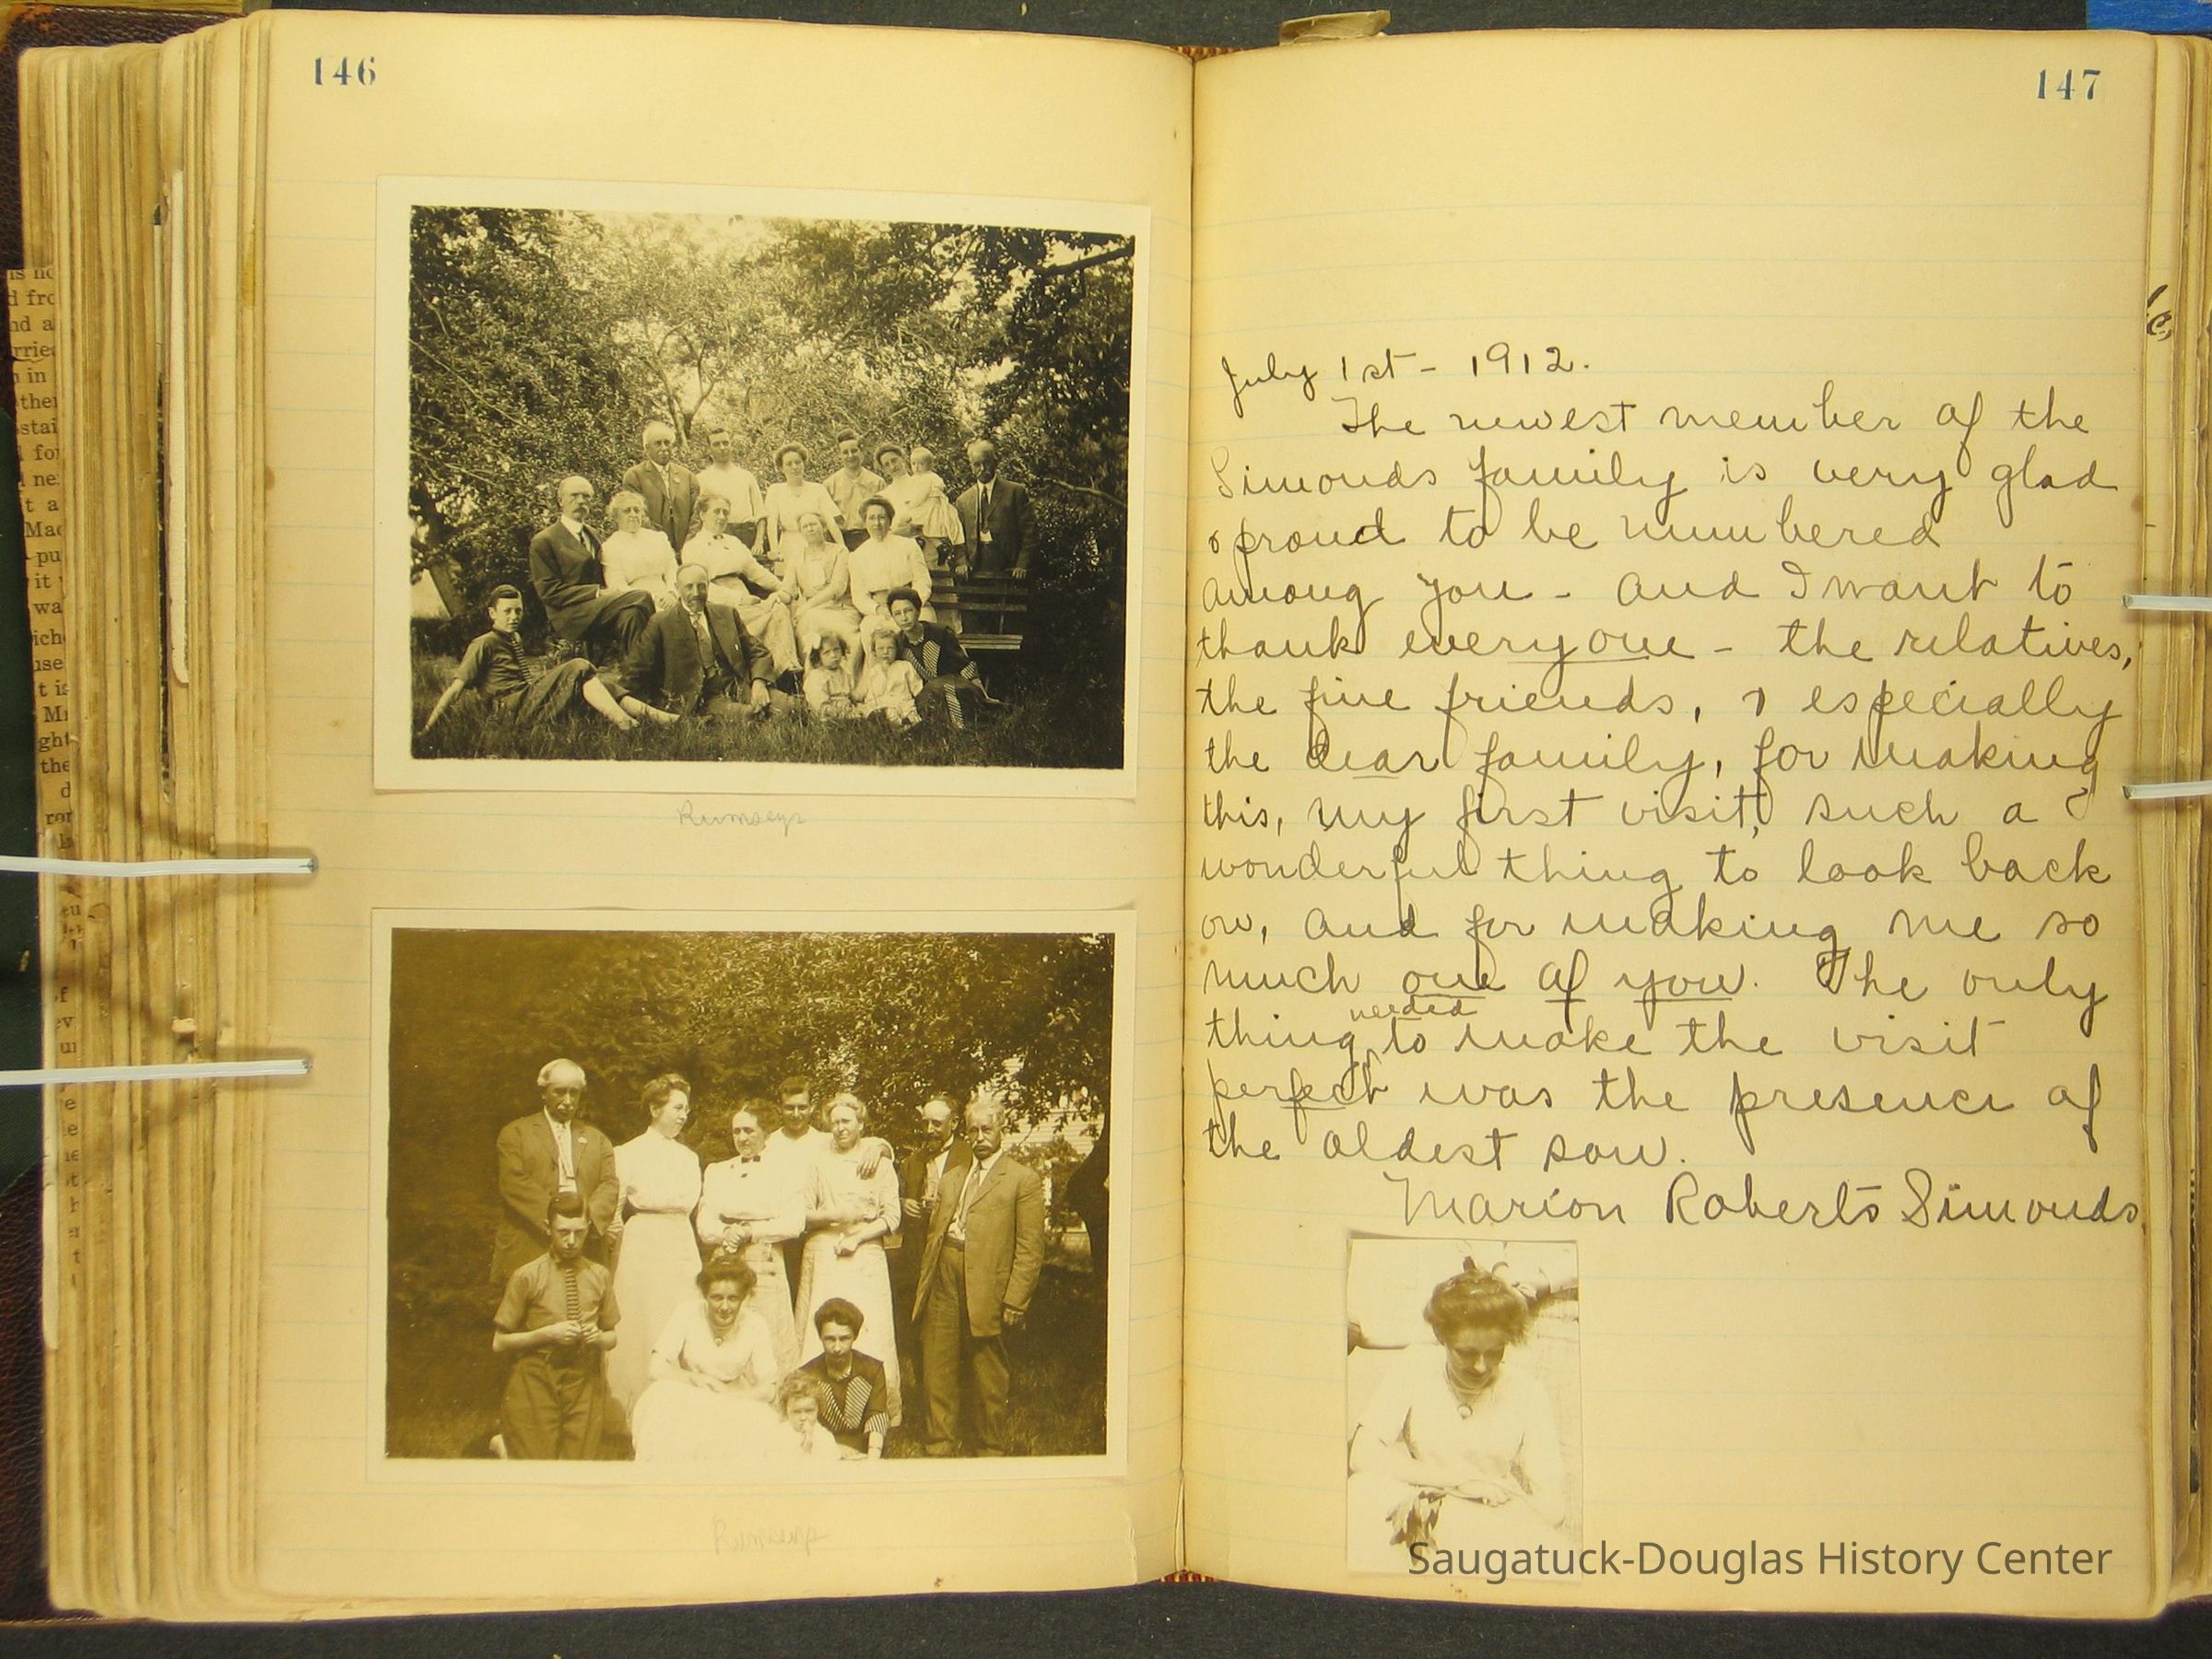 146
Rumseys
Rumseys
147
July 1st - 1912.
The newest member of the
Simonds family is very glad
& proud to be numbered
among you - and I want to
thank everyone - the relatives,
the fine friends, & especially
the dear family, for making
this, my first visit, such a
wonderful thing to look back
on, and for making me so
much one of you. The only
needed
thing to make the visit
perfect was the presence of
the oldest son.
Marion Roberts Simonds.
Saugatuck-Douglas History Center